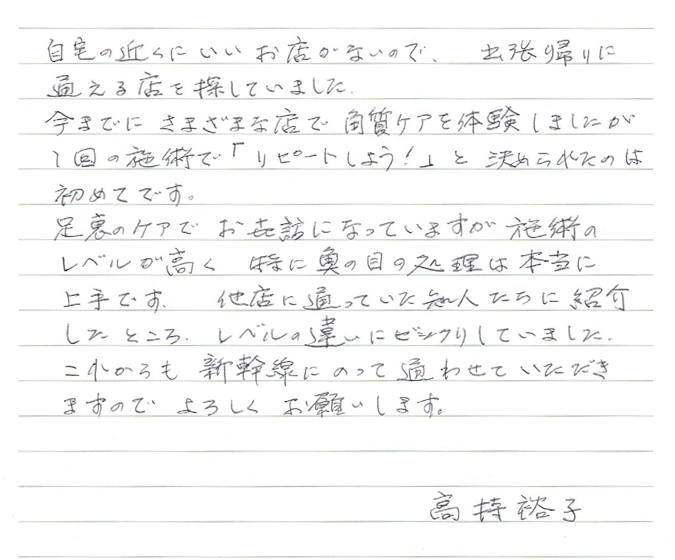 自宅の近くにいいお店がないので、出張帰りに
通える店を探していました。
今までにさまざまな店で角質ケアを体験しましたが
1回の施術で「リピートしよう!」と決められたのは
初めてです。
足裏のケアでお世話になっていますが施術の
レベルが高く 特に魚の目の処理は本当に
上手です。 他店に通っていた知人たちに紹介
したところ、レベルの違いにビックリしていました。
これからも新幹線にのって通わせていただき
ますのでよろしくお願いします。
高持裕子